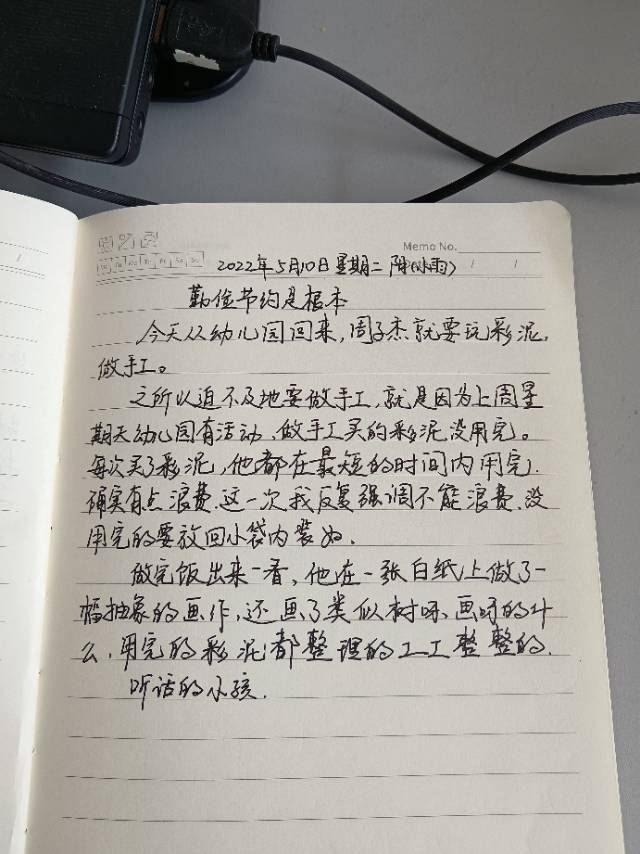 Memo No.
Date / /
2022年5月10日星期二 阴(小雨)
勤俭节约是根本
今天从幼儿园回来,周子杰就要玩彩泥,
做手工。
之所以迫不及地要做手工,就是因为上周星
期天幼儿园有活动,做手工买的彩泥没用完。
每次买了彩泥,他都在最短的时间内用完,
确实有点浪费,这一次我反复强调不能浪费,没
用完的要放回小袋内装好。
做完饭出来一看,他在一张白纸上做了一
幅抽象的画作,还画了类似树呀、画呀的什
么,用完的彩泥都整理的工工整整的.
听话的小孩.